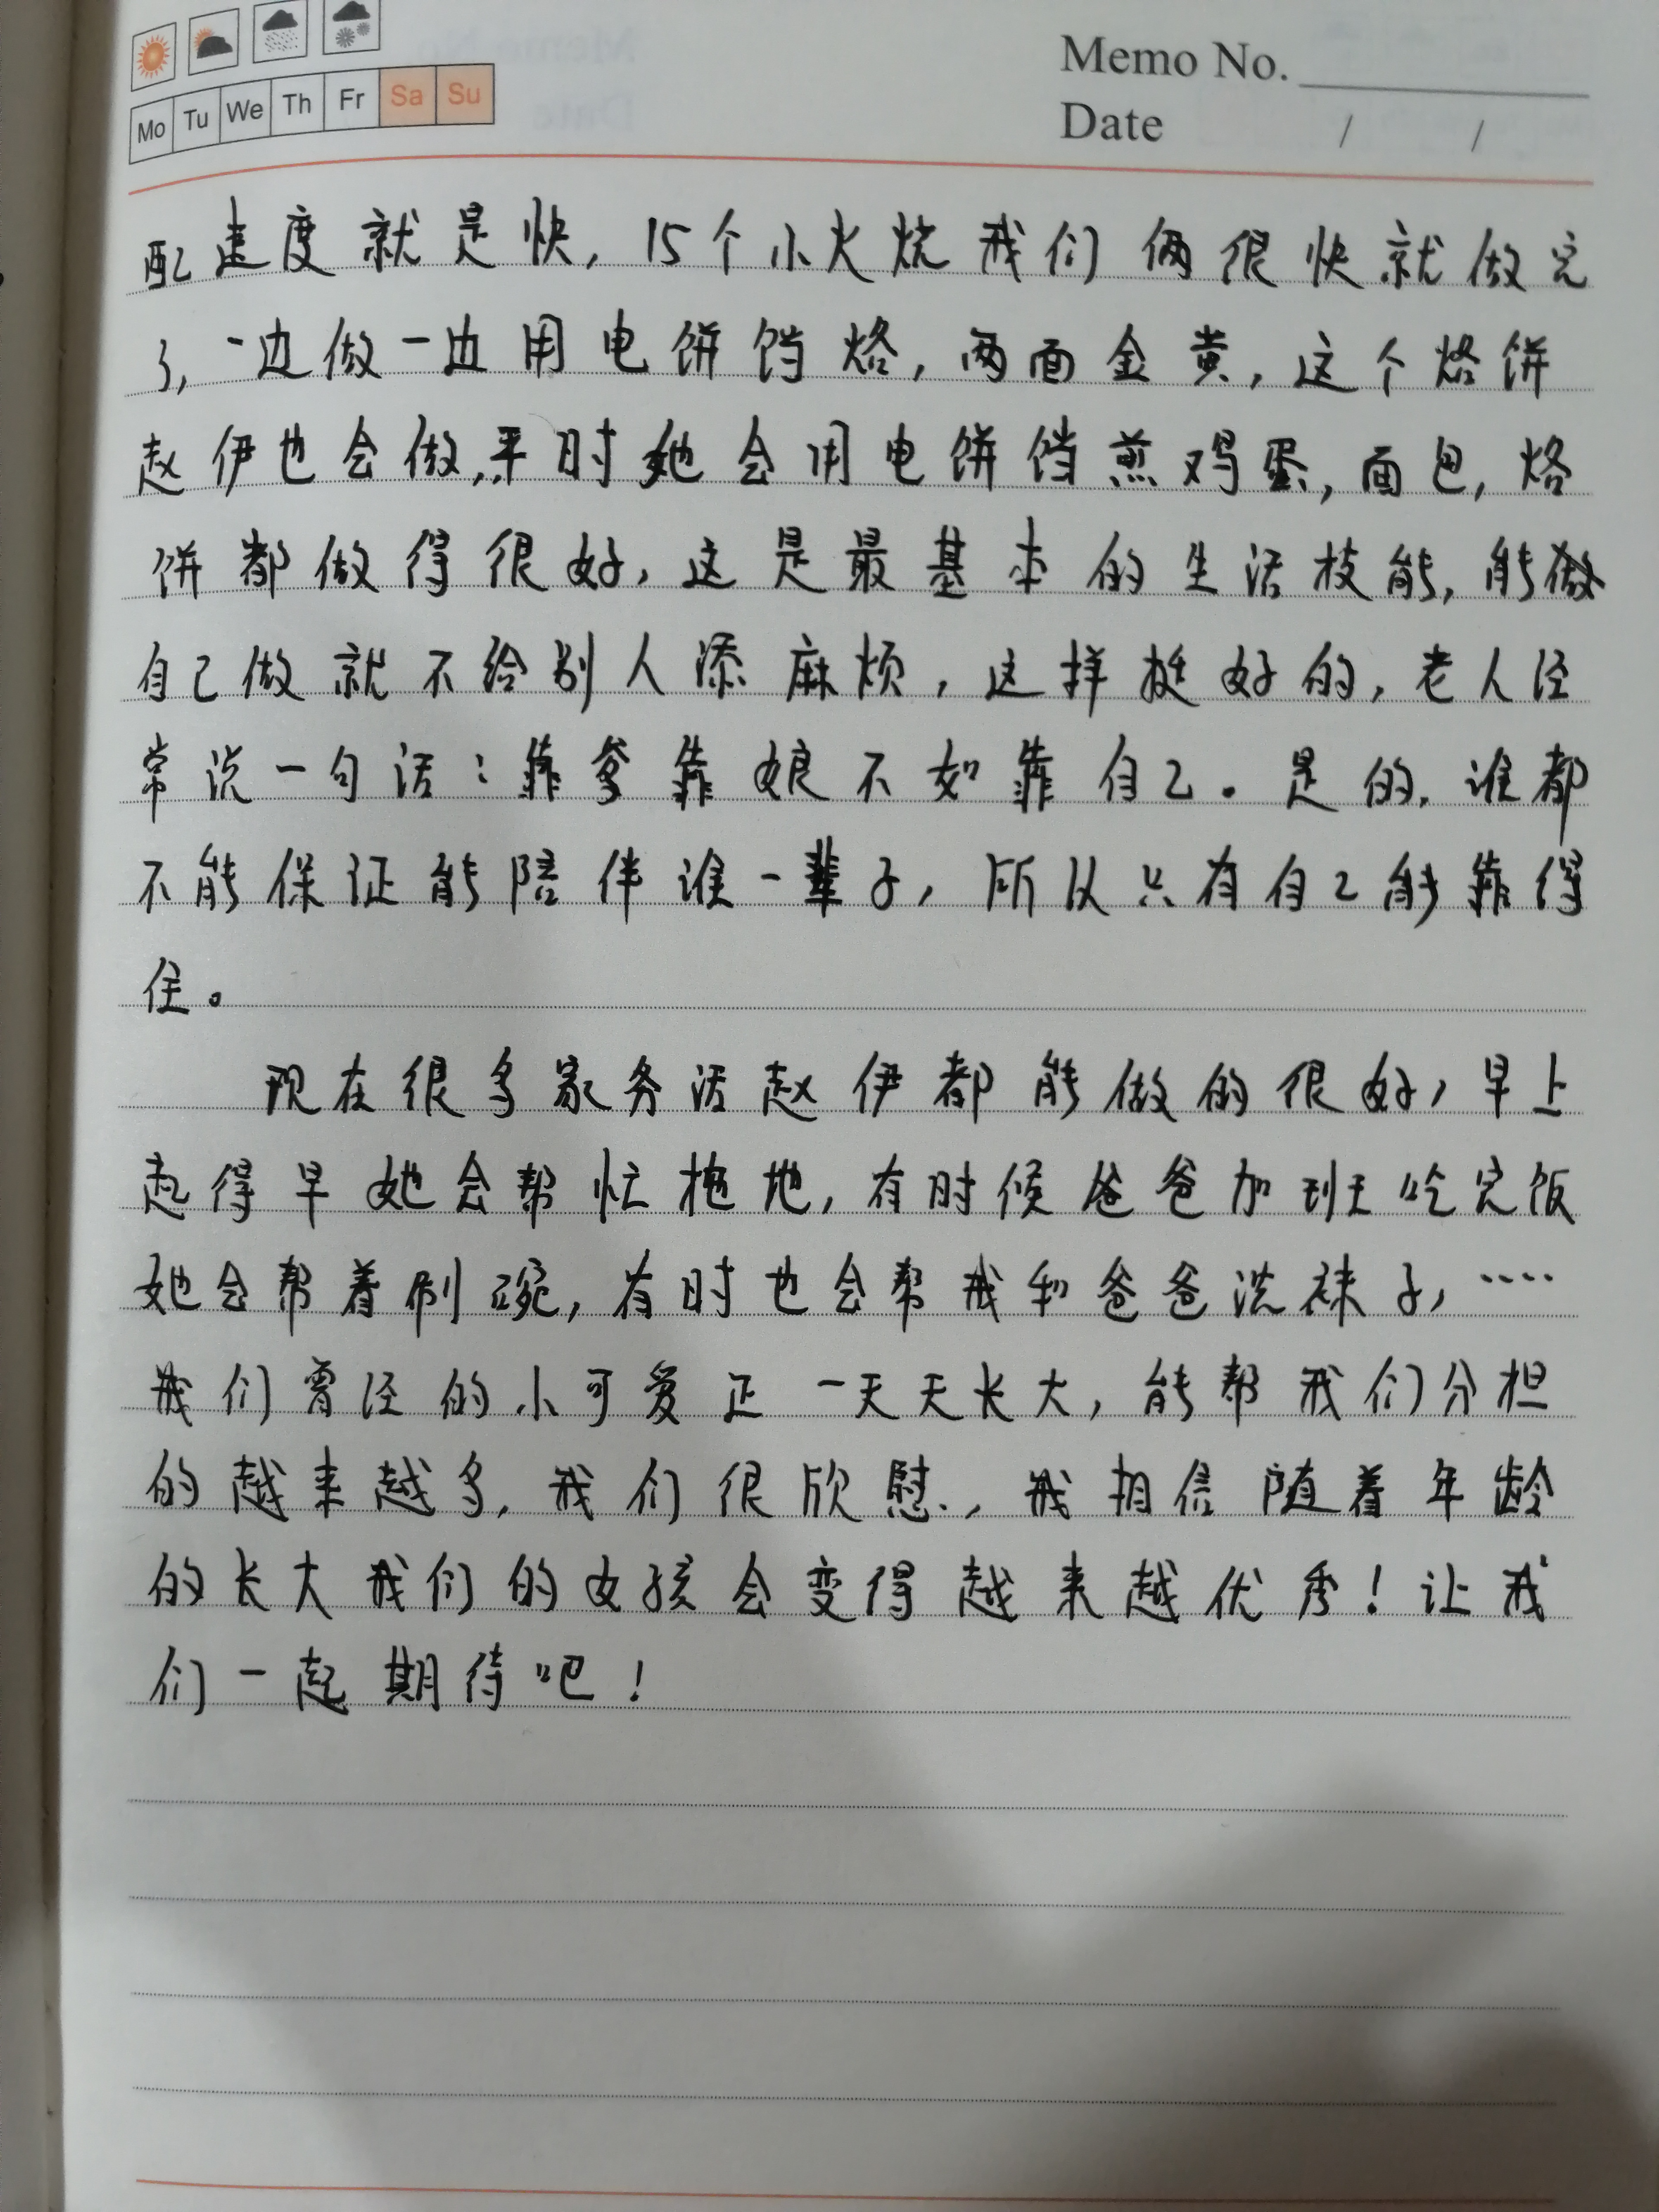 Mo Tu We Th Fr Sa Su
Memo No.
Date / /
配速度就是快，15个小火烧我们俩很快就做完
了，一边做一边用电饼铛烙，两面金黄，这个烙饼
赵伊也会做，平时她会用电饼铛煎鸡蛋，面包，烙
饼都做得很好，这是最基本的生活技能，能做
自己做就不给别人添麻烦，这样挺好的，老人经
常说一句话：靠爹靠娘不如靠自己。是的，谁都
不能保证能陪伴谁一辈子，所以只有自己能靠得
住。
现在很多家务活赵伊都能做的很好，早上
起得早她会帮忙拖地，有时候爸爸加班吃完饭
她会帮着刷碗，有时也会帮我和爸爸洗袜子，····
我们曾经的小可爱正一天天长大，能帮我们分担
的越来越多，我们很欣慰，我相信随着年龄
的长大我们的女孩会变得越来越优秀！让我
们一起期待吧！